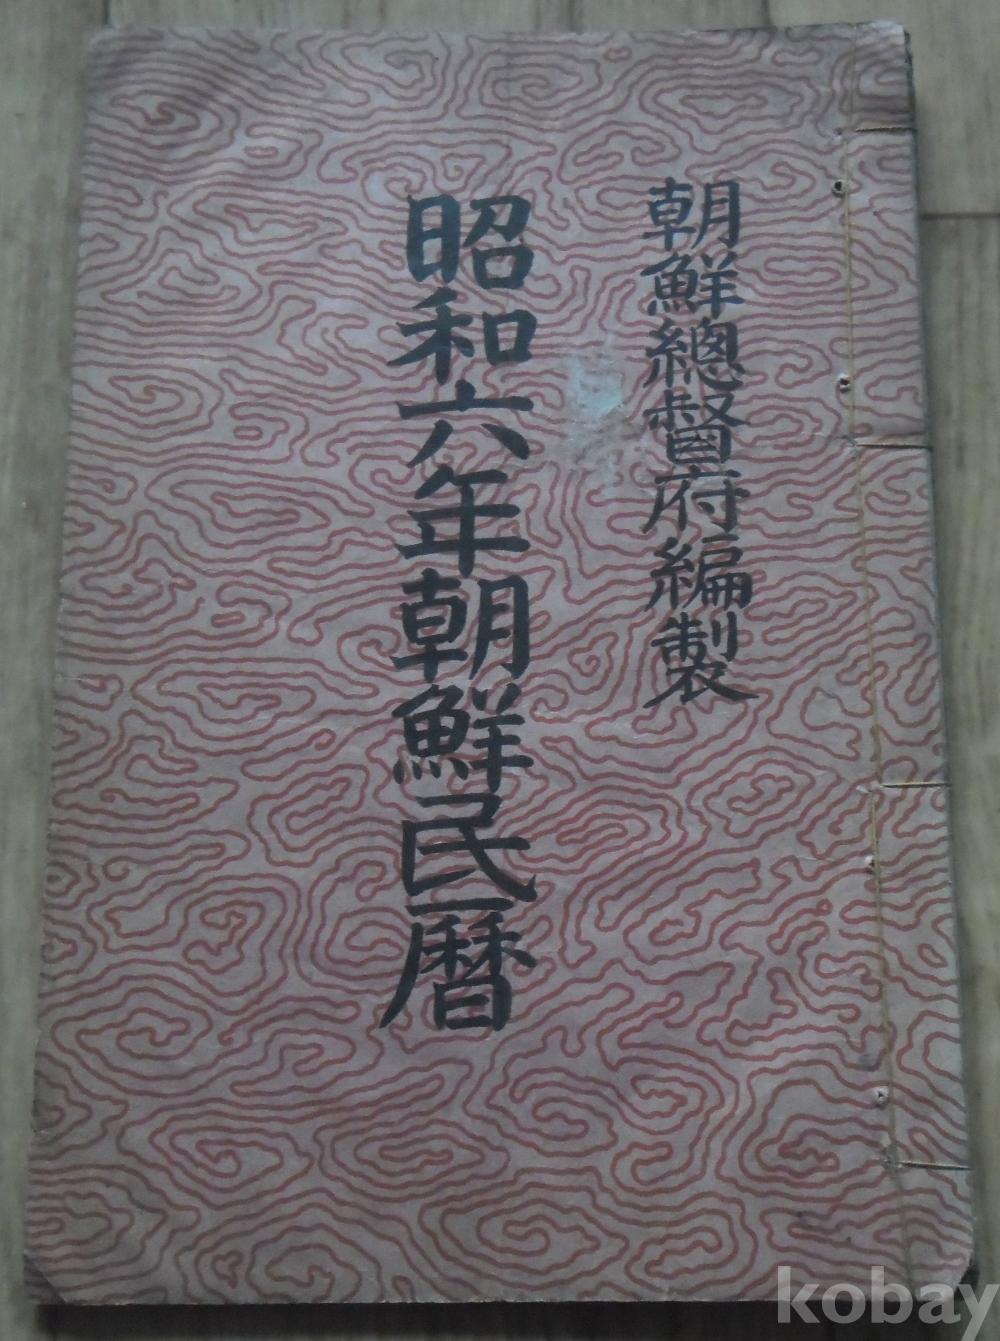 朝鮮總督府編製
昭和六年朝鮮民暦
kobay